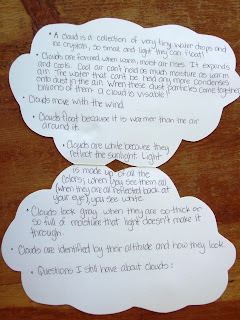 • A cloud is a collection of very tiny water drops and
ice crystals, so small and light they can float!
• Clouds are formed when warm, moist air rises. It expands
and cools. Cool air can't hold as much moisture as warm
air. The water that can't be held any more condenses
onto dust in the air. When these dust particles come together
(billions of them) a cloud is visable!
• Clouds move with the wind.
• Clouds float because it is warmer than the air
around it.
• Clouds are white because they
reflect the sunlight. Light
is made up of all the
colors, when you see them all
(when they are all reflected back at
your eye), you see white.
• Clouds look gray when they are so thick or
so full of moisture that light doesn't make it
through.
• Clouds are identified by their altitude and how they look.
• Questions I still have about clouds: